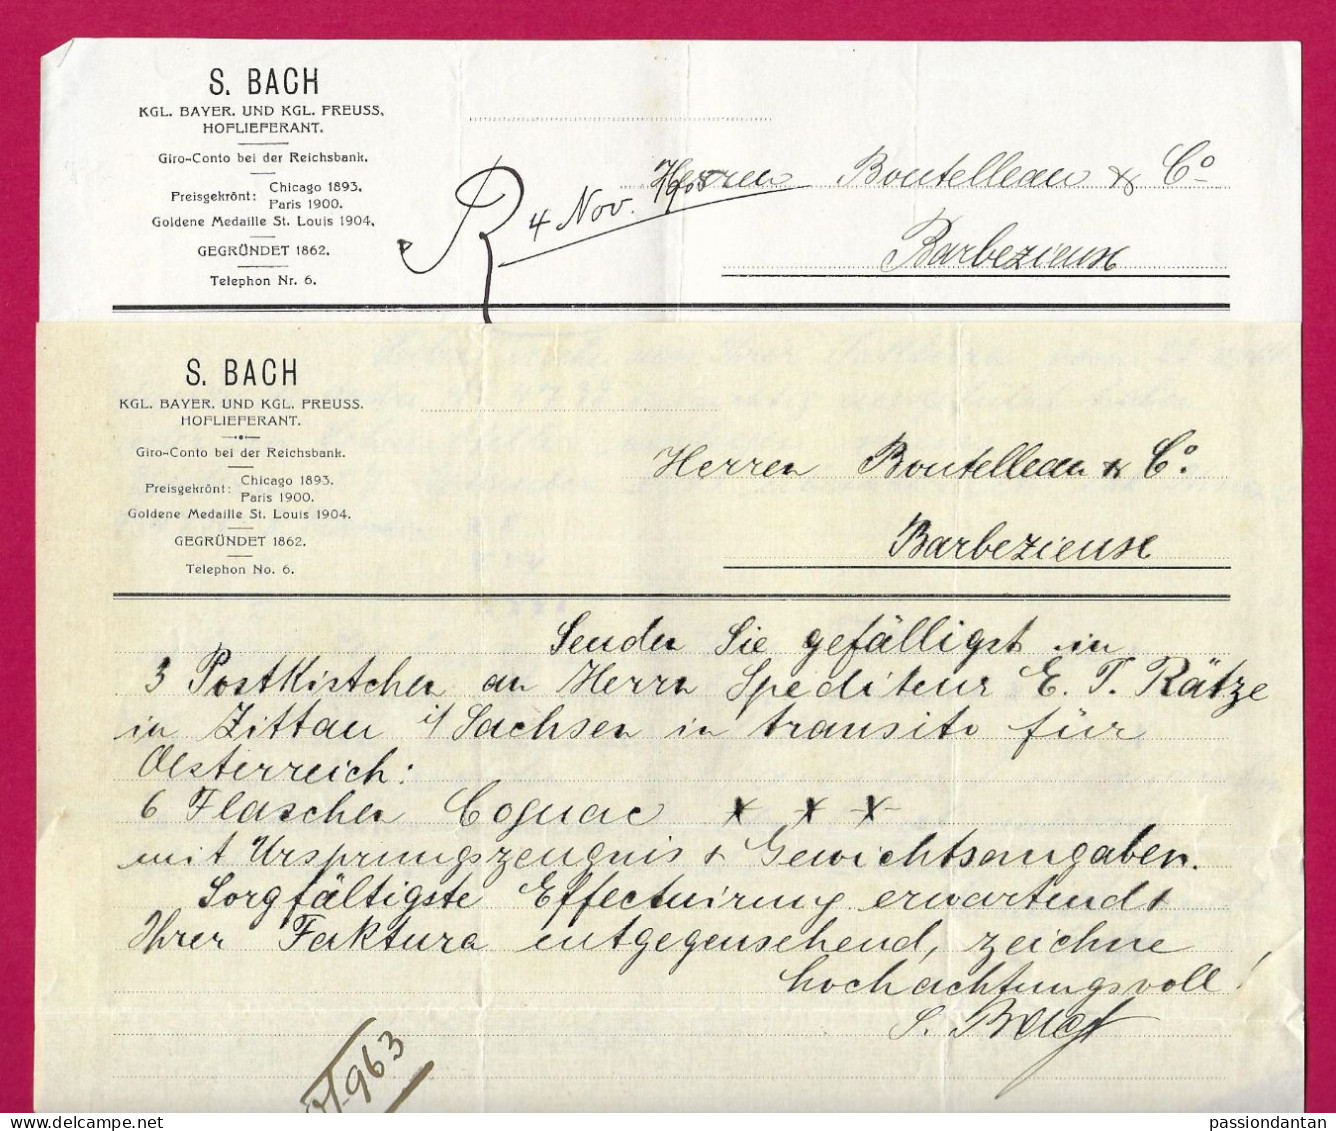 S. BACH
KGL. BAYER. UND KGL. PREUSS.
HOFLIEFERANT.
Giro-Conto bei der Reichsbank.
Preisgekrönt: Chicago 1893.
Paris 1900.
Goldene Medaille St. Louis 1904.
GEGRÜNDET 1862.
Telephon Nr. 6.
R 4 Nov. 1905
Herren Boutelleau & Co
Barbezieux
S. BACH
KGL. BAYER. UND KGL. PREUSS.
HOFLIEFERANT.
Giro-Conto bei der Reichsbank.
Preisgekrönt: Chicago 1893.
Paris 1900.
Goldene Medaille St. Louis 1904.
GEGRÜNDET 1862.
Telephon No. 6.
Herren Boutelleau & Co.
Barbezieux
Senden Sie gefälligst in
3 Postkistchen an Herrn Spediteur E. T. Rätze
in Zittau i/ Sachsen in transito für
Oesterreich:
6 Flaschen Cognac x x x
mit Ursprungszeugnis & Gewichtsangaben.
Sorgfältigste Effectuirung erwartend &
Ihrer Faktura entgegensehend, zeichne
hochachtungsvoll!
S. Bach
963
passiondantan